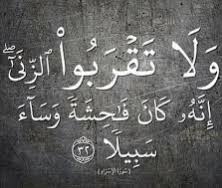 وَلَا تَقْرَبُوا۟ ٱلزِّنَىٰٓ ۖ
إِنَّهُۥ كَانَ فَـٰحِشَةً وَسَآءَ
سَبِيلًا ﴿٣٢﴾